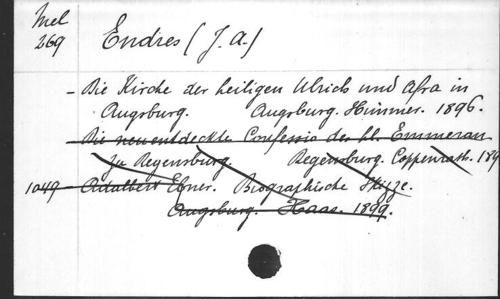 Mel
269
Endres (J. A.)
- Die Kirche der heiligen Ulrich und Afra in
Augsburg. Augsburg. Himmer. 1896.
- Die neuentdeckte Confessio des hl. Emmeran
zu Regensburg. Regensburg. Coppenrath. 189
1049 - Adalbert Ebner. Biographische Skizze.
Augsburg. Haas. 1899.